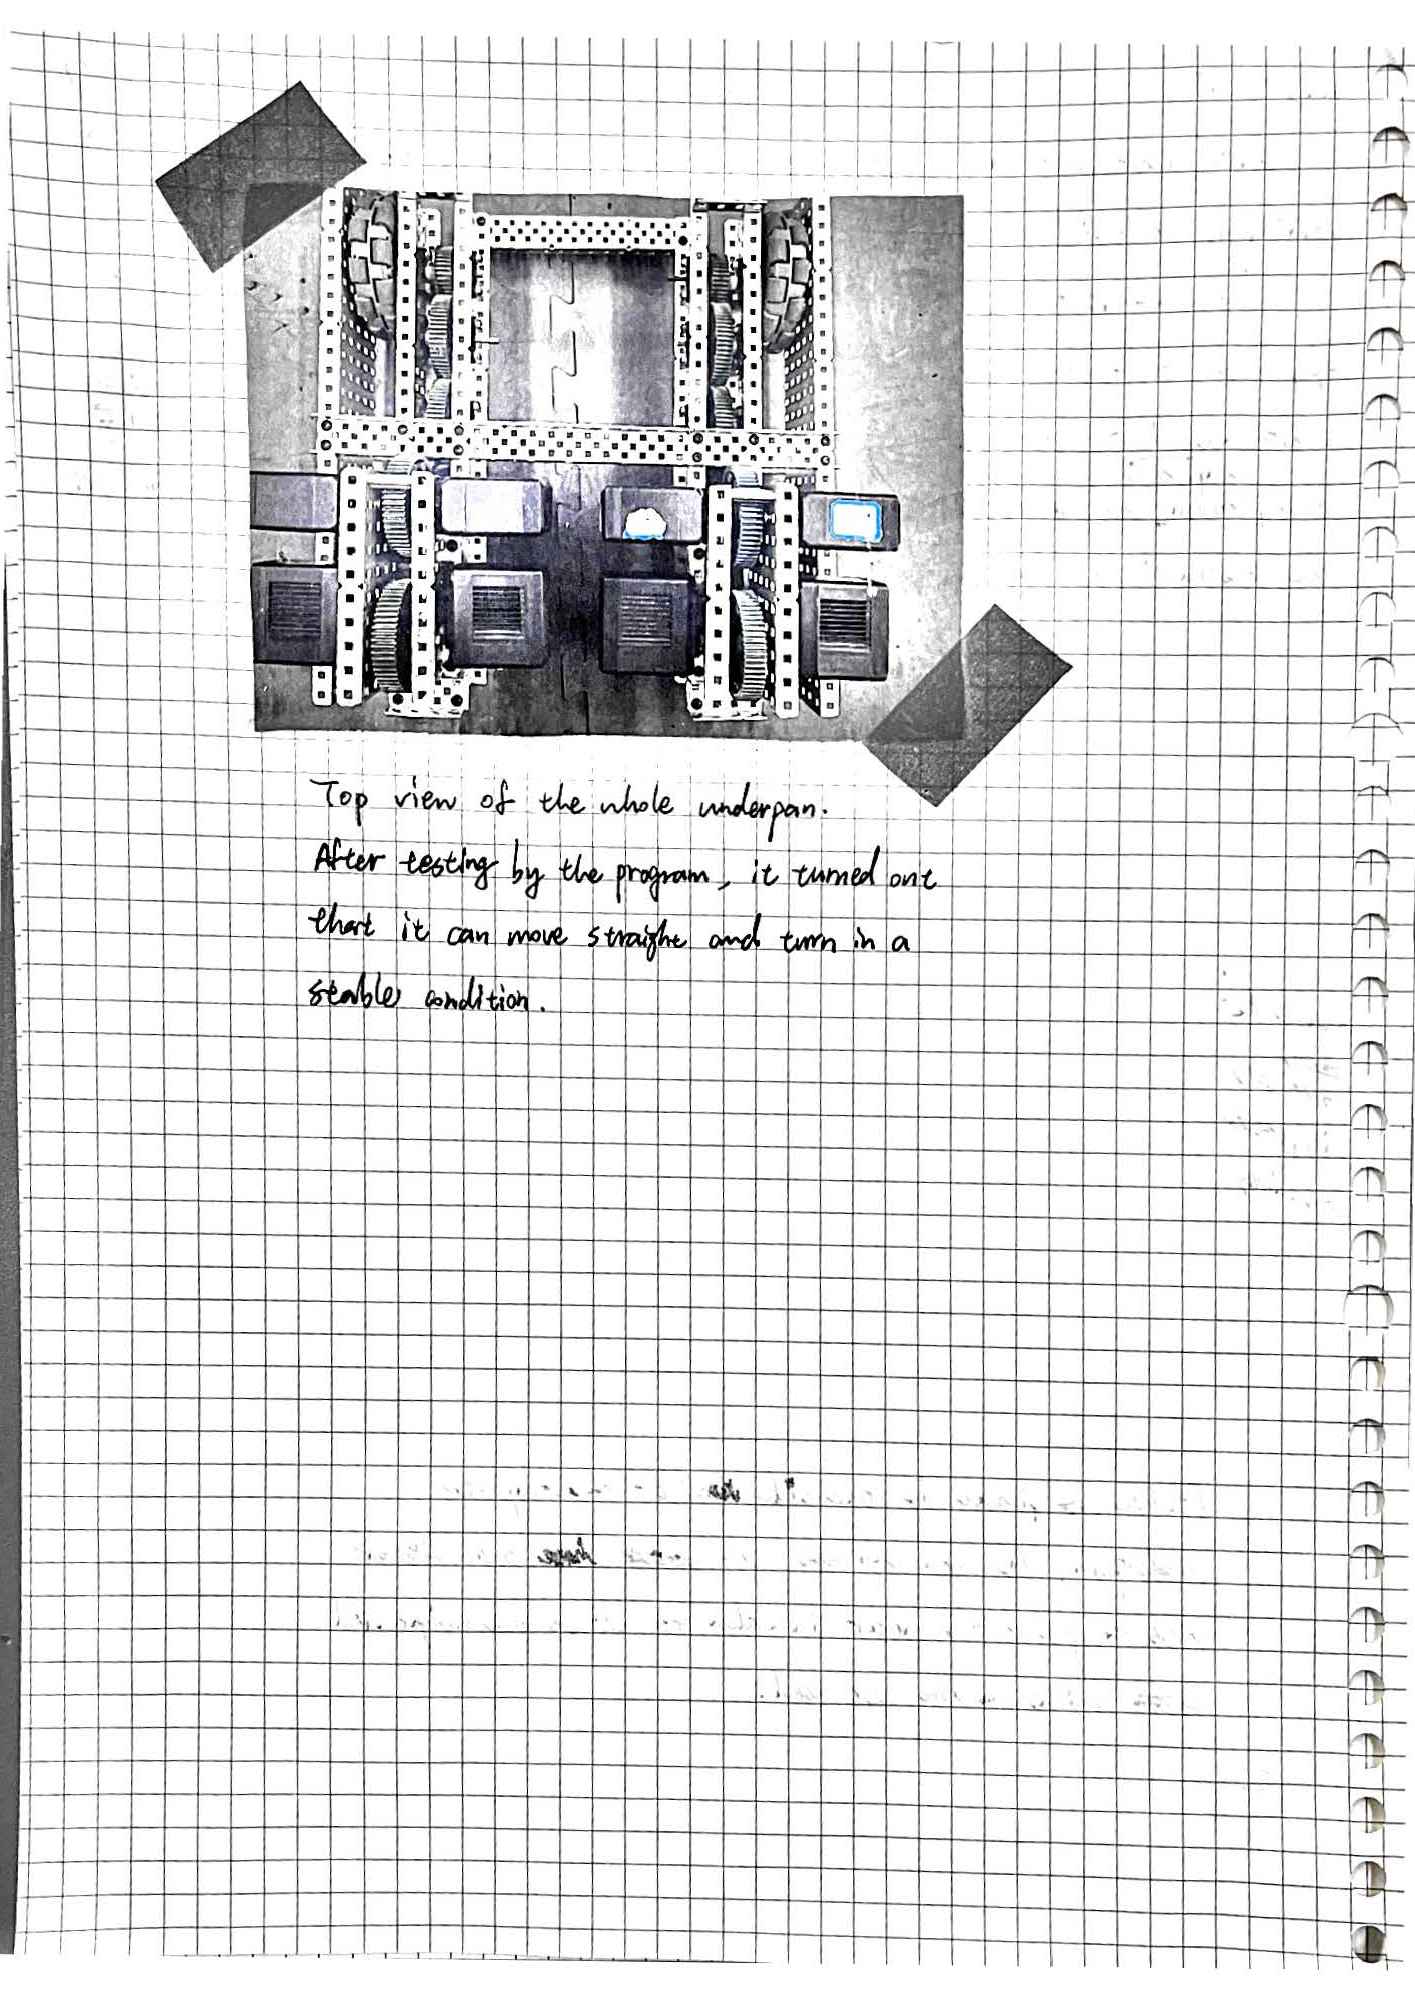 Top view of the whole underpan.
After testing by the program, it turned out
that it can move straight and turn in a
stable condition.